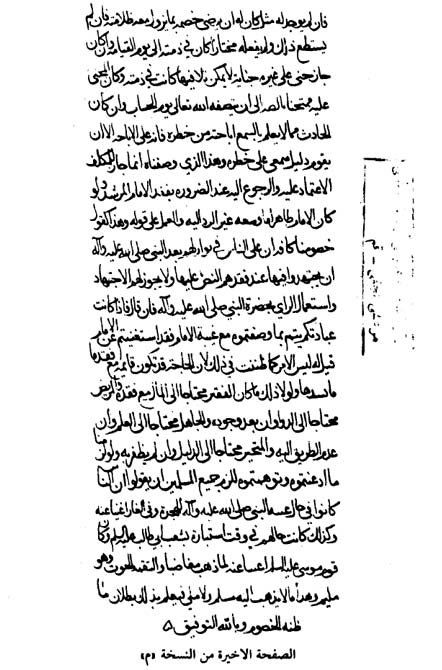 فان لم يوجد له مثل كان له ان يرضى خصمه بما يزول معه ظلامته فان لم
يستطع ذلك ولم يفعله مختارا كان في ذمته الى يوم القيامة وان كان
جان جنى على غيره جناية لا يمكن تلافيها كانت في ذمته وكان المجنى
عليه ممتحنا بالصبر الى ان ينصفه الله تعالى يوم الحساب وان كان
الحادث مما لا يعلم بالسمع اباحته من حظره فانه على الاباحة الا ان
يقوم دليل سمعي على حظره وهذا الذي وصفناه انما جاز للمكلف
الاعتماد عليه والرجوع اليه عند الضرورة بفقد الامام المرشد ولو
كان الامام ظاهرا ما وسعه غير الرد اليه والعمل على قوله وهذا كقول
خصومنا كافة ان على الناس في نوازلهم بعد النبي صلى الله عليه وآله
ان يجتهدوا فيها عند فقدهم النص عليها ولا يجوز لهم الاجتهاد
واستعمال الراى بحضرة النبي صلى الله عليه وآله فان قال فاذا كانت
عبادتكم تتم بما وصفتموه مع غيبة الامام فقد استغنيتم عن الامام
قيل له ليس الامر كما ظننت في ذلك لان الحاجة قد تكون قائمة مع فقد ما
يسدها ولولا ذلك ما كان الفقير محتاجا الى المال مع فقده والمريض
محتاجا الى الدواء وان بعد وجوده والجاهل محتاجا الى العلم وان
عدم الطريق اليه والمتحير محتاجا الى الدليل وان لم يظفر به ولو لزمنا
ما ادعيتموه وتوهمتموه للزم جميع المسلمين ان يقولوا ان الناس
كانوا في حال غيبة النبي صلى الله عليه وآله للهجرة وفي الغار اغنياء عنه
وكذلك كانت حالهم في وقت استتاره بشعب ابي طالب عليه السلم وكان
قوم موسى عليه السلم اغنياء عنه لما ذهب مغاضبا والتقمه الحوت وهو
مليم وهذا مما لا يذهب اليه مسلم ولا ملي فيعلم بذلك بطلان ما
ظنه الخصوم وبالله التوفيق
الصفحة الاخيرة من النسخة «م»